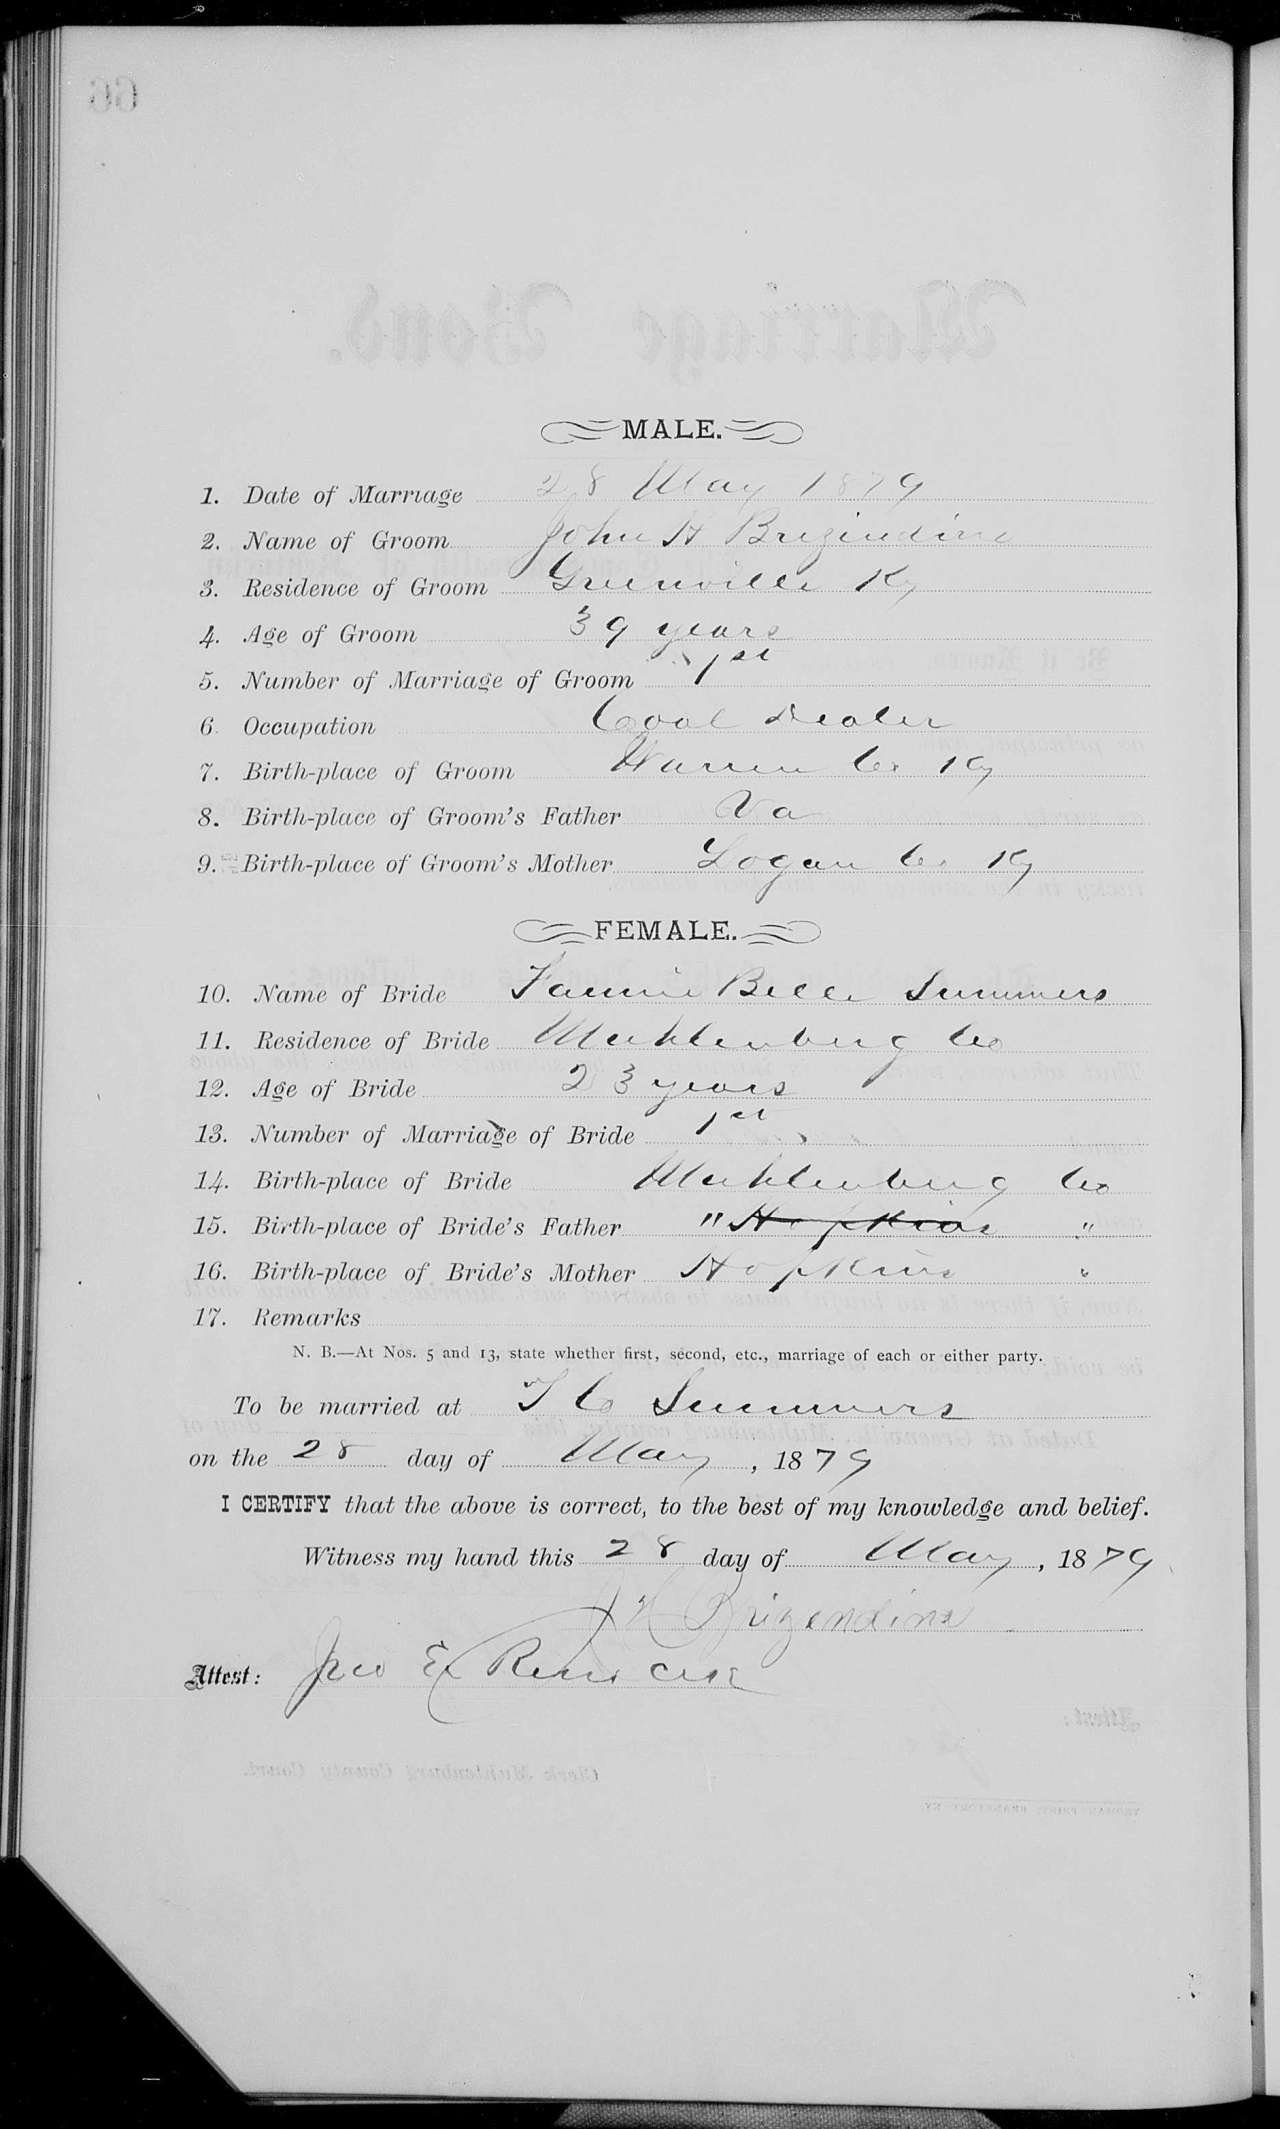 MALE.
1. Date of Marriage 28 May 1879
2. Name of Groom John H Brizindine
3. Residence of Groom Greenville Ky
4. Age of Groom 39 years
5. Number of Marriage of Groom 1st
6. Occupation Coal Dealer
7. Birth-place of Groom Warren Co Ky
8. Birth-place of Groom's Father Va
9. Birth-place of Groom's Mother Logan Co Ky
FEMALE.
10. Name of Bride Fannie Belle Summers
11. Residence of Bride Muhlenburg Co
12. Age of Bride 23 years
13. Number of Marriage of Bride 1st
14. Birth-place of Bride Muhlenburg Co
15. Birth-place of Bride's Father " Hopkins "
16. Birth-place of Bride's Mother Hopkins "
17. Remarks
N. B.—At Nos. 5 and 13, state whether first, second, etc., marriage of each or either party.
To be married at T C Summers
on the 28 day of May, 1879
I CERTIFY that the above is correct, to the best of my knowledge and belief.
Witness my hand this 28 day of May, 1879
J H Brizendine
Attest: Jno E